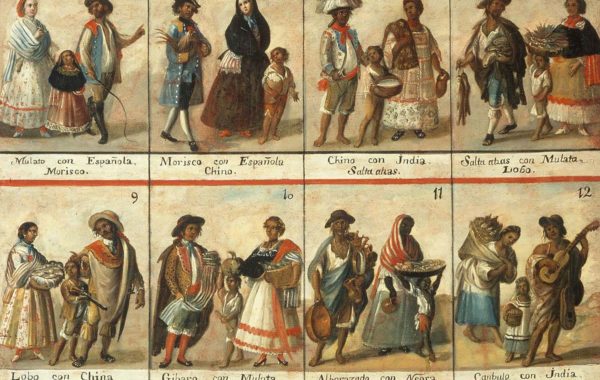 Mulato con Española.
Morisco.
Morisco con Española
Chino.
Chino con India.
Salta atras.
Salta atras con Mulata
Lobo.
9
Lobo con China
10
Gibaro con Mulata
11
Albarazado con Negra
12
Canbujo con India